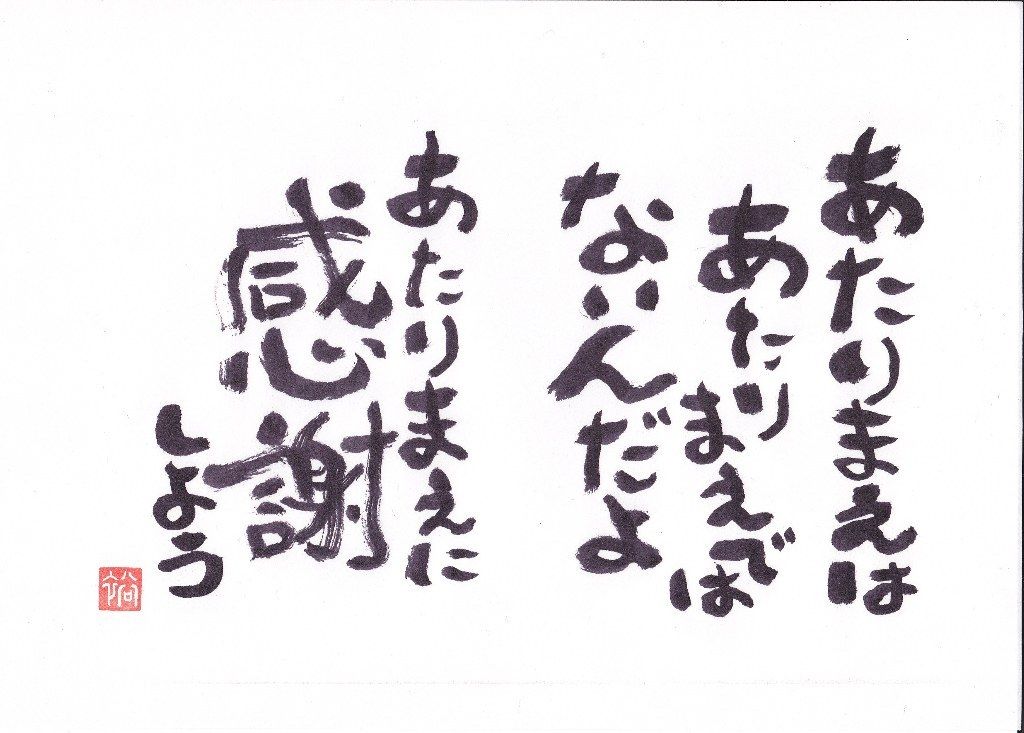 あたりまえは
あたりまえでは
ないんだよ
あたりまえに
感謝
しよう
裕